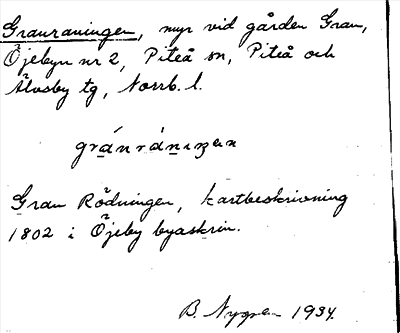 Granraningen, myr vid gården Gran,
Öjebyn nr 2, Piteå sn, Piteå och
Älvsby tg, Norrb. l.
gránránıŋen
Gran Rödningen, kartbeskrivning
1802 i Öjeby byaskrin.
B. Nygren 1934.